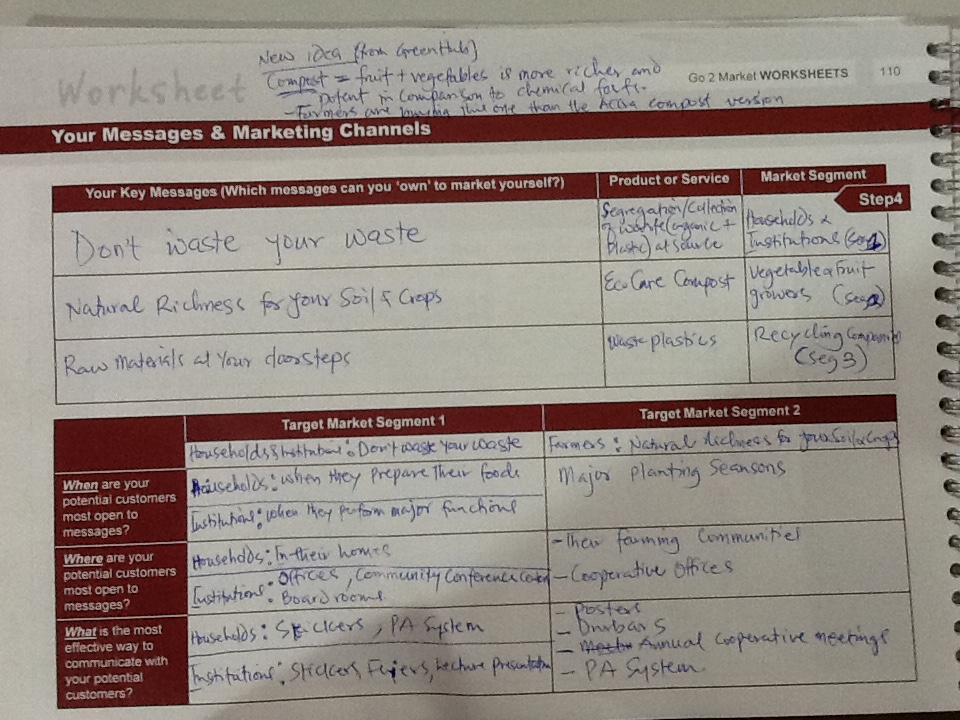 New idea (from GreenHub)
Compost = fruit + vegetables is more richer and
potent in comparison to chemical ferts.
- Farmers are buying this one than the Accra compost version
Worksheet
Go 2 Market WORKSHEETS 110
Your Messages & Marketing Channels
Your Key Messages (Which messages can you 'own' to market yourself?) Product or Service Market Segment
Step4
Don't waste your waste
Segregation/Collection
of waste (organic +
Plastic) at source
Households &
Institutions (seg 1)
Natural Richness for your Soil & Crops
EcoCare Compost
Vegetable & Fruit
growers (seg 2)
Raw materials at Your doorsteps
Waste plastics
Recycling Companies
(Seg 3)
Target Market Segment 1 Target Market Segment 2
Households & Institutions: Don't waste Your waste
Farmers: Natural Richness for your Soil & Crops
When are your
potential customers
most open to
messages?
Households: when they prepare Their foods
Institutions: when they perform major functions
Major Planting Seansons
Where are your
potential customers
most open to
messages?
Households: In their homes
Institutions: Offices, Community Conference Center
Boardrooms
- Their farming Communities
- Cooperative Offices
What is the most
effective way to
communicate with
your potential
customers?
Households: Stickers, PA System
Institutions: Stickers, Fliers, Lecture Presentation
- Posters
- Durbars
- Annual Cooperative meetings
- PA System